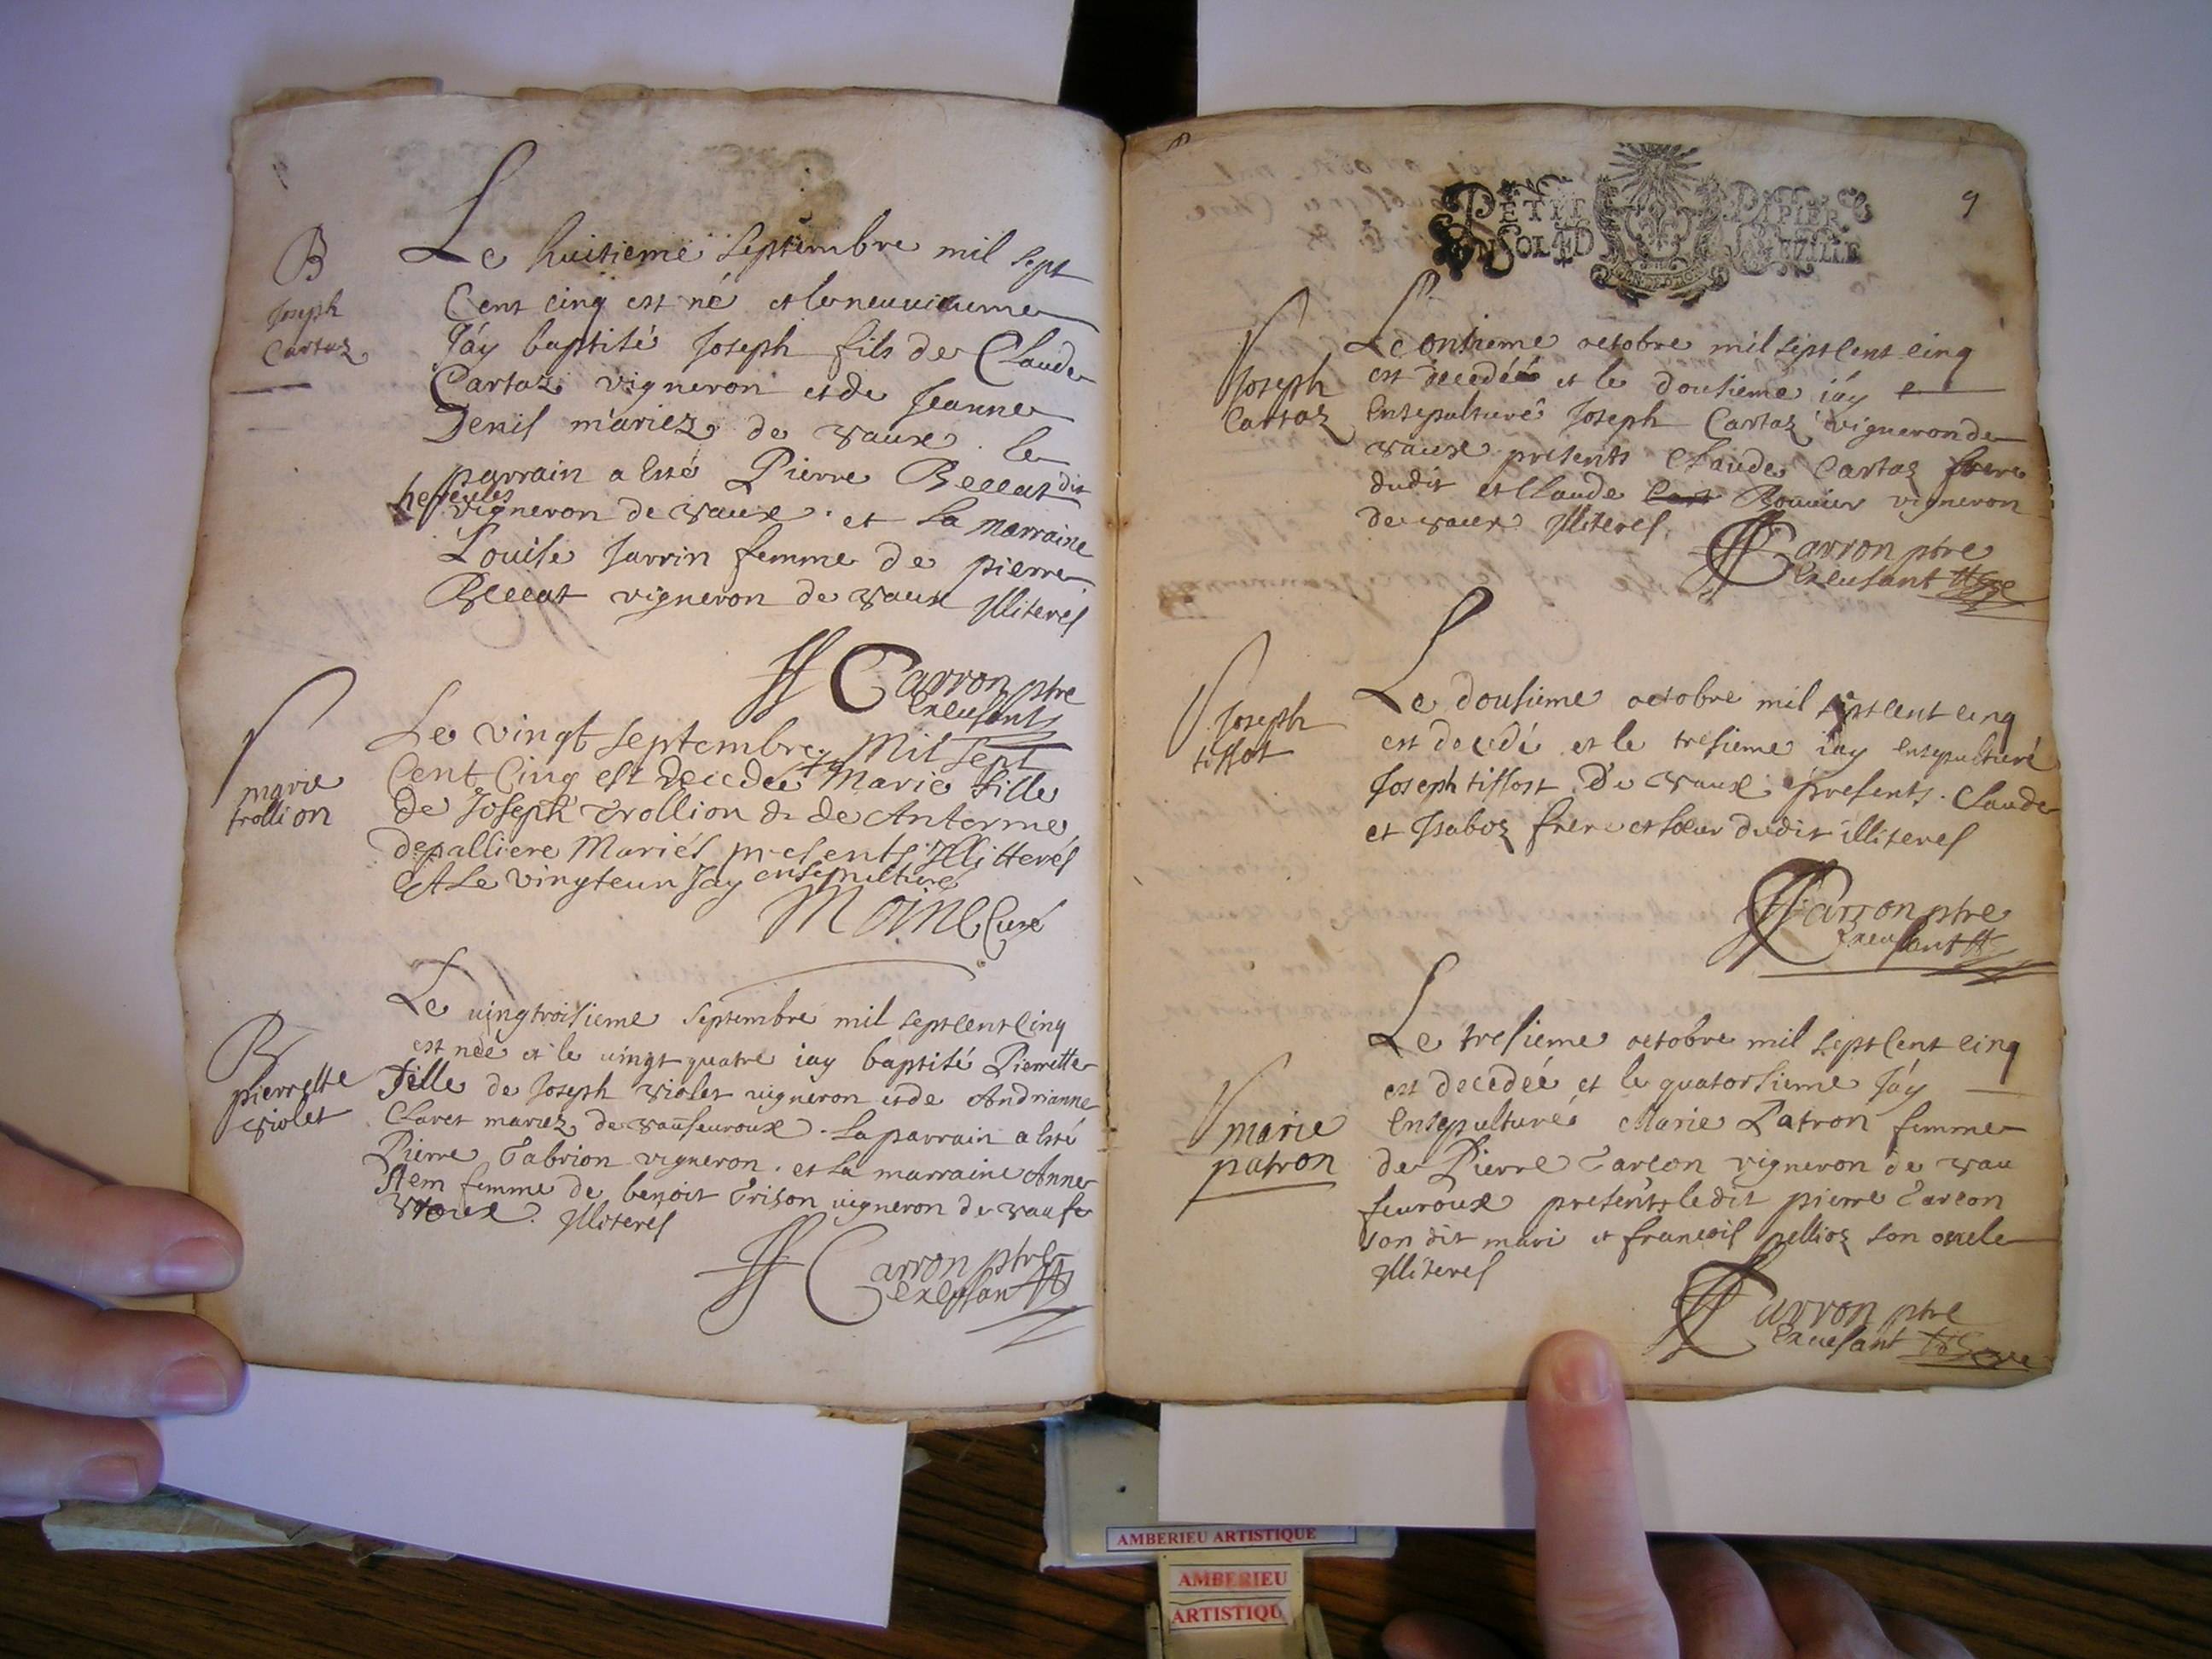 B
Joseph
Cartaz
Le huitieme septembre mil sept
Cent cinq est né et le neuuieme
J'ay baptisé Joseph fils de Claude
Cartaz vigneron et de Jeanne
Denis mariez de vaux. le
parrain a esté Pierre Beccat dit
hercules
vigneron de vaux. et la marraine
Louise Jarrin femme de pierre
Beccat vigneron de vaux Illiterés
Carron ptre
Excusant
marie
trollion
Le vingt septembre Mil sept
Cent Cinq est decedée Marie fille
de Joseph trollion & de Anterme
depalliere Mariés presents Illitterés
Et Le vingteun Jay ensepulturé
Moine Curé
B
pierrette
violet
Le uingtroisieme septembre mil septcentcinq
est neé et le uingt quatre iay baptisé Pierrette
fille de Joseph violet uigneron et de Andrianne
Claret mariez de vaufeuroux. La parrain a esté
Pierre Tabrion vigneron. et La marraine Anne
Item femme de benoit Grison uigneron de vaufe
vroux. Illiterés
Carron ptre
excusant
9
PETIT PAPIER
Joseph
Cartaz
Le onsieme octobre mil sept cent cinq
est decedeé et le dousieme iáy
Ensepulturé Joseph Cartaz vigneron de
vaux presents Claude Cartaz frere
dudit et Claude Bouuier vigneron
de vaux Illiterés
Carron ptre
Excusant
Joseph
tissot
Le dousieme octobre mil septcent cinq
est decedé et le tresieme iay ensepulturé
Joseph tissost De vaux presents. Claude
et Isaboz frere et soeur dudit illiterés
Carron ptre
Excusant
marie
patron
Le tresieme octobre mil sept cent cinq
est decedeé et le quatorsieme J'áy
Ensepulturés Marie Patron femme
de Pierre Carcon vigneron de vau
feuroux presents ledit pierre Carcon
son dit mari et francois pellioz son oncle
Illiterés
Carron ptre
Excusant
AMBERIEU ARTISTIQUE
AMBERIEU
ARTISTIQU